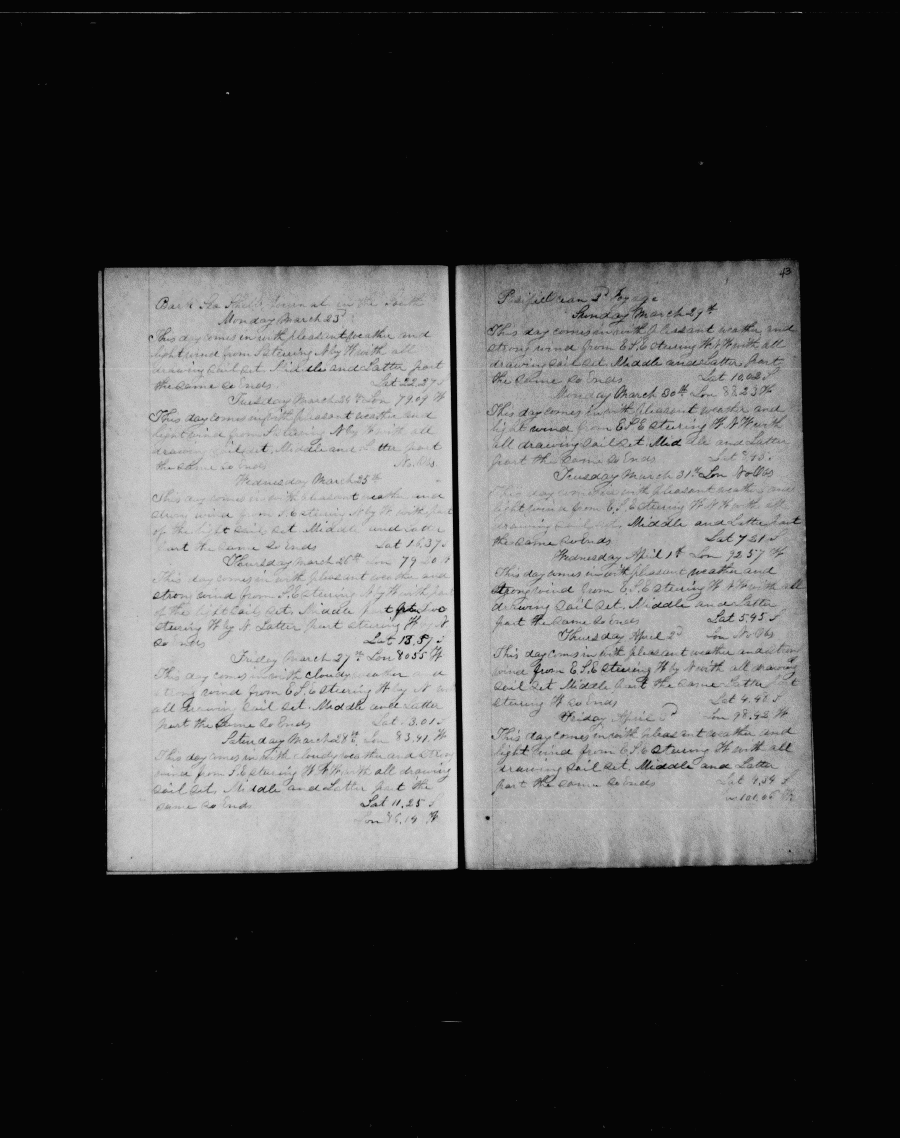 Monday March 23d
This day comes in with pleasant weather and
light wind from S stering N by W with all
drawing sail set. Middle and Latter part
the same So Ends Lat 22.27 S
Tuesday March 24th Lon 79.09 W
This day comes in with pleasant weather and
light wind from S stering N by W with all
drawing sail set. Middle and Latter part
the same So Ends No Obs
Wednesday March 25th
This day comes in with pleasant weather and
strong wind from S.E stering N by W with part
of the light sail set Middle and Latter
part the same So Ends Lat 16.37 S
Thursday March 26th Lon 79
This day comes in with pleasant weather and
strong wind from S.E stering N by W with part
of the light sail set. Middle part
stering W by N Latter part stering W by N
So ends Lat 13.57 S
Friday March 27th Lon 80 55 W
This day comes in with cloudy weather and
strong wind from E S.E stering W by N with
all drawing sail set. Middle and Latter
part the same So Ends Lat 13.01 S
Saterday March 28th Lon 83.41 W
This day comes in with cloudy weather and strong
wind from S.E stering W N W with all drawing
sail set. Middle and Latter part the
same So Ends Lat 11.25 S
Lon 86.14 W
43
Voyage
Sunday March 29th
This day comes in with pleasant weather and
strong wind from E S.E stering W N W with all
drawing sail set Middle and Latter part
the same So Ends Lat 10.02 S
Monday March 30th Lon 88.23 W
This day comes in with pleasant weather and
light wind from E S.E stering W N W with
all drawing sail set Middle and Latter
part the same So Ends Lat
Tuesday March 31th Lon No Obs
This day comes in with pleasant weather and
light wind from E.S.E stering W N W with all
drawing sail set. Middle and Latter part
the same So Ends Lat 7 51 S
Wednesday April 1th Lon 92 57 W
This day comes in with pleasant weather and
strong wind from E S.E stering W N W with all
drawing sail set. Middle and Latter
part the same So Ends Lat 5.45 S
Thursday April 2d Lon No Obs
This day coms in with pleasant weather and strong
wind from E S.E stering W by N with all drawing
sail set Middle part the same Latter part
stering W So Ends Lat 4.42 S
Friday April 3d Lon 98.42 W
This day coms in with pleasant weather and
light wind from E S.E stering W with all
drawing sail set Middle and Latter
part the same So Ends Lat 4.34 S
Lon 101.05 W